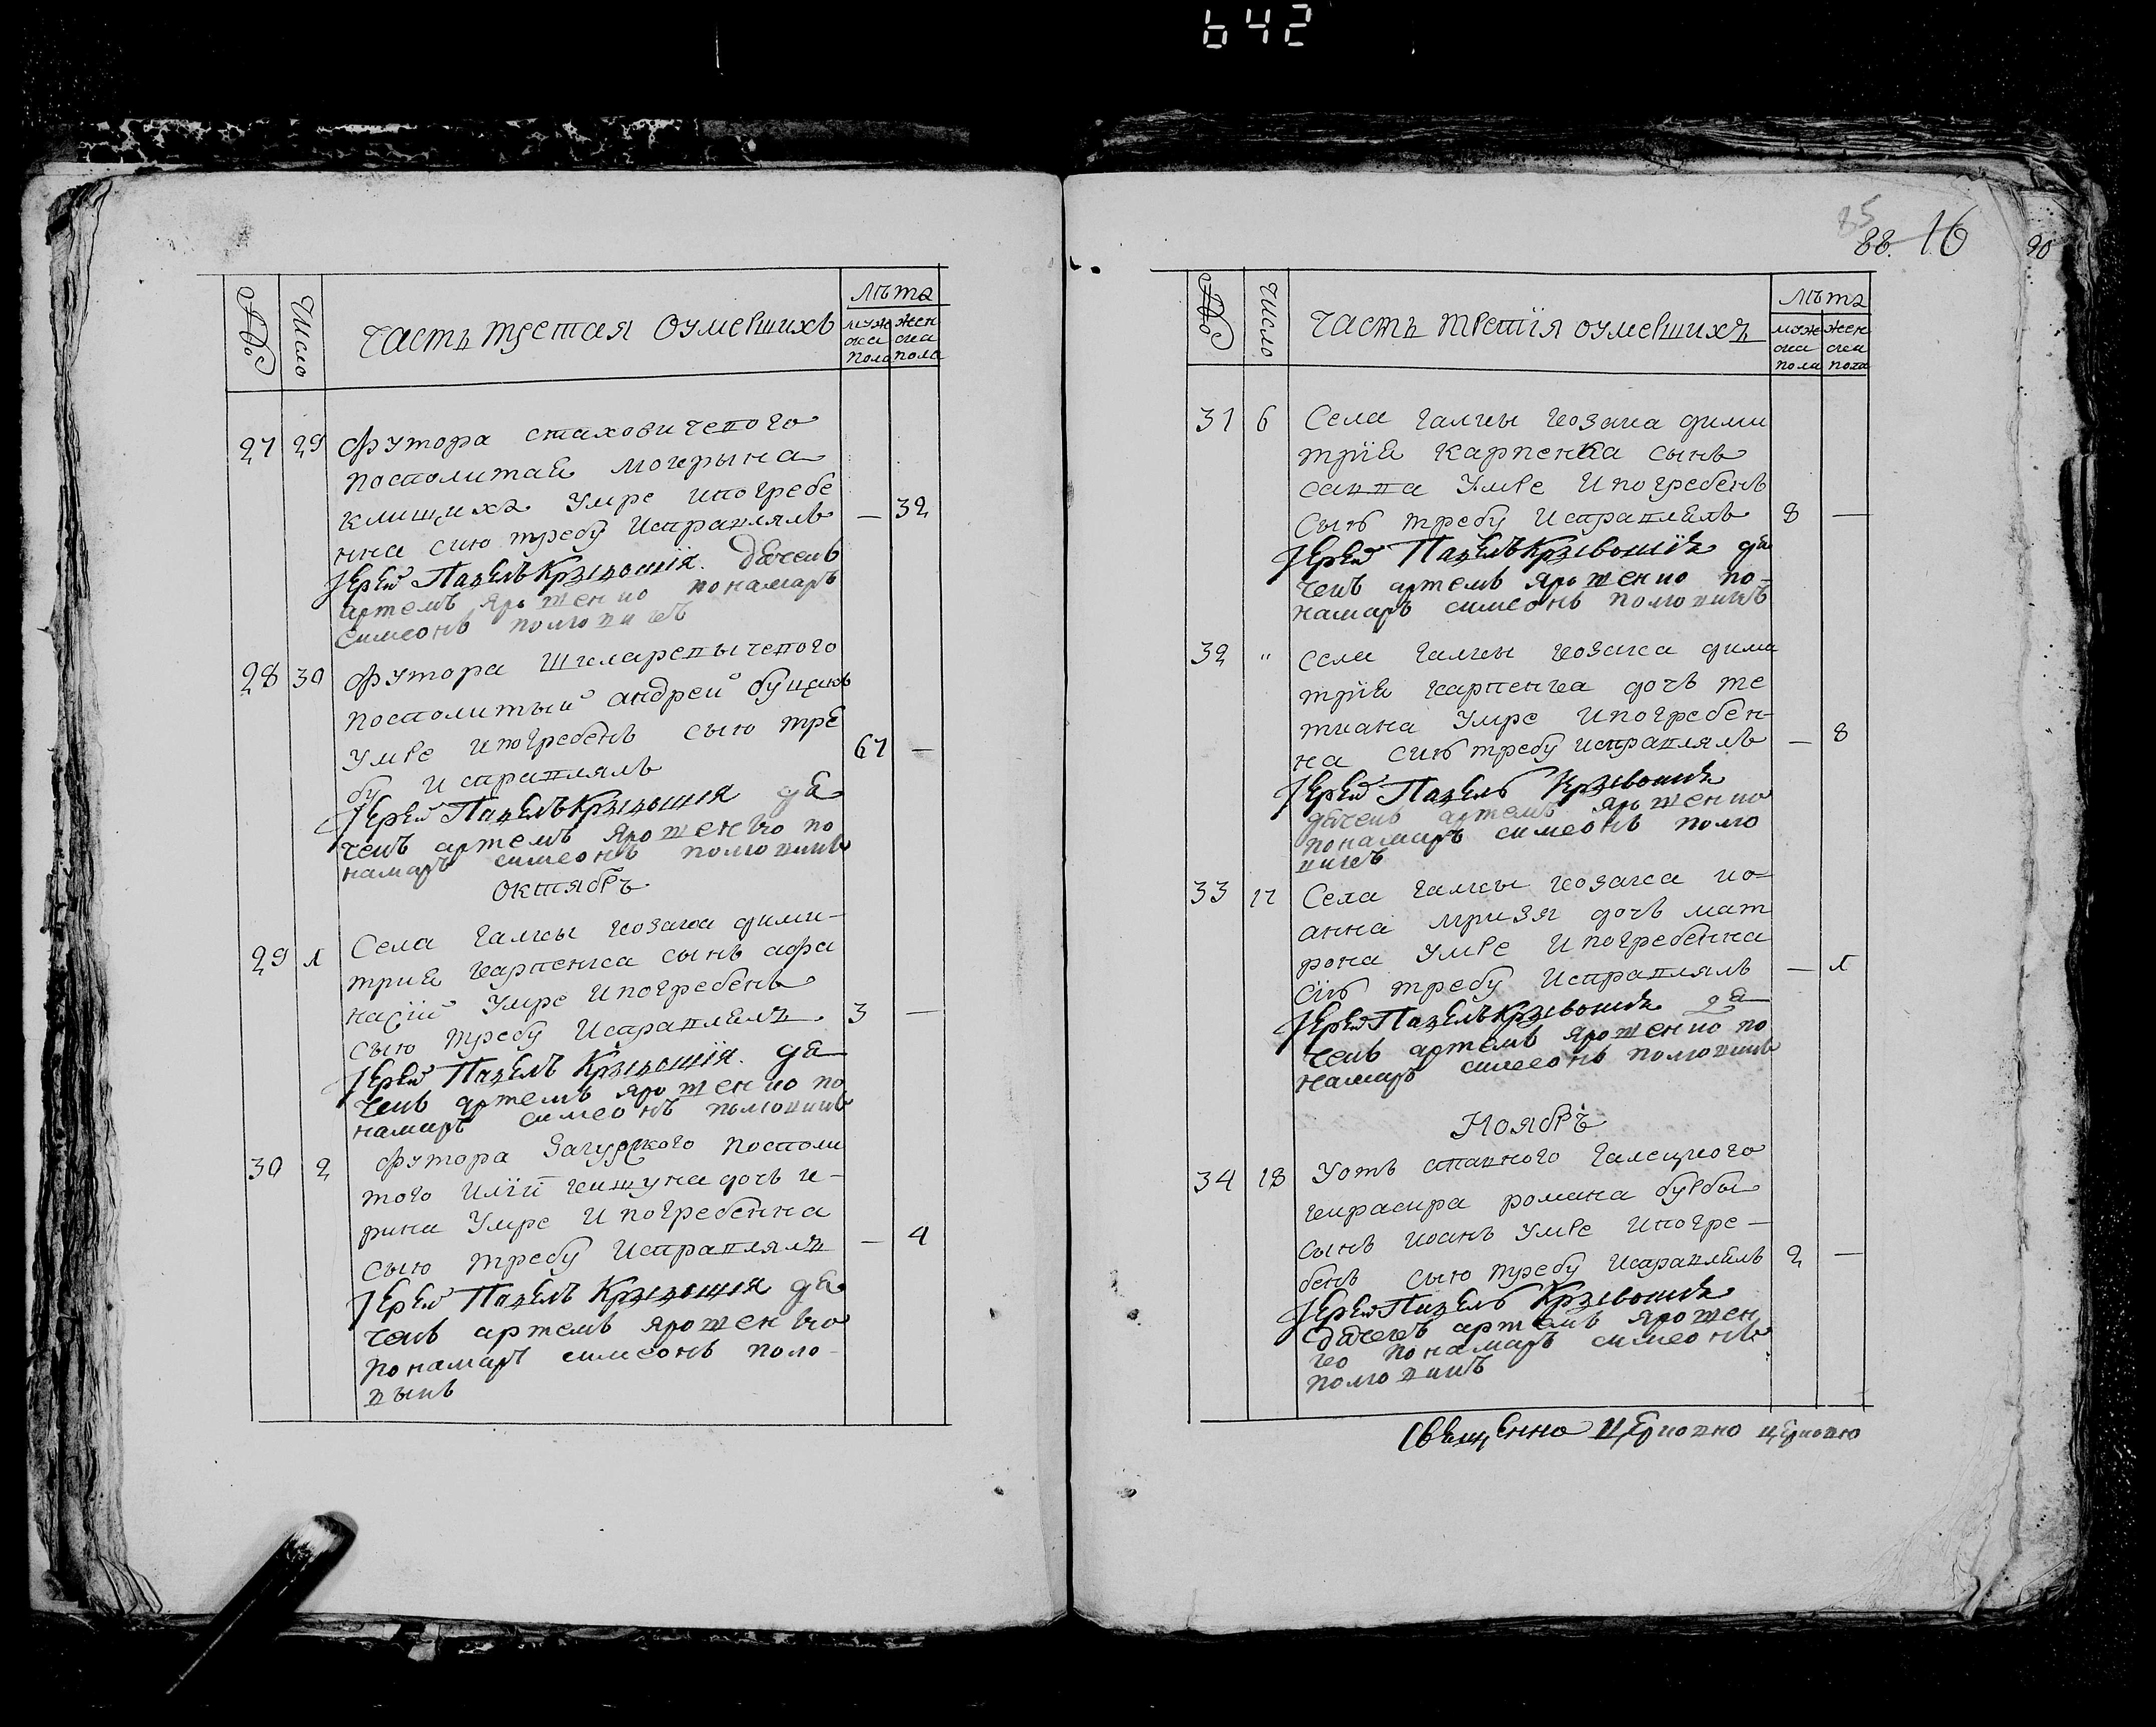 642
№
Число
Часть третая оумершихъ
Лѣта
муж
ска
пола
жен
ска
пола
27 29 Футора стаховиченого
посполитая могрына
клищиха умре ипогребе
нна сию требу исправлялъ — 32
Іерей Павелъ Кривошія. дячокъ
артемъ ярошенко понамарь
симеонъ
28 30 Футора
посполитый андрей буцкий
умре ипогребенъ сыю тре 67 —
бу исправлялъ
Іерей Павелъ Кривошія дя
чокъ артемъ ярошенко по
намарь симеонъ
октябрь
29 1 Села галки козака дими-
трия карпенка сынъ афа
насій умре ипогребенъ
сыю требу исправлялъ 3 —
Іерей Павелъ Кривошія. дя
чокъ артемъ ярошенко по
намарь симеонъ
30 2 Футора Загурского посполи
того иліи кишуна дочь и-
рина умре и погребенна
сыю требу исправлялъ — 4
Іерей Павелъ Кривошія дя
чокъ артемъ ярошенко
понамарь симеонъ
85
88. 16
90
№
Число
Часть третія оумершихъ
Лѣта
муж
ска
пола
жен
ска
пола
31 6 Села галки козака дими
трія карпенка сынъ
савва умре и погребенъ
сыю требу исправлялъ 8 —
Іерей Павелъ Кривошія дя
чокъ артемъ ярошенко по-
намарь симеонъ
32 " села галки козака дими
трія карпенка дочь те
тиана умре ипогребен-
на сию требу исправлялъ — 8
Іерей Павелъ Кривошія
дячокъ артемъ ярошенко
понамарь симеонъ
33 17 Села галки козака ио-
анна мризя дочь мат
рона умре и погребенна
сію требу исправлялъ — 1
Іерей Павелъ Кривошія дя
чокъ артемъ ярошенко по
намарь симеонъ
Ноябрь
34 18 Уотъ ставного галецкого
кирасира романа бурбы
сынъ иоанъ умре ипогре-
бенъ сыю требу исправлялъ 2 —
Іерей Павелъ Кривошія
дячокъ артемъ ярошен
ко понамарь симеонъ
Священно церковно церковно